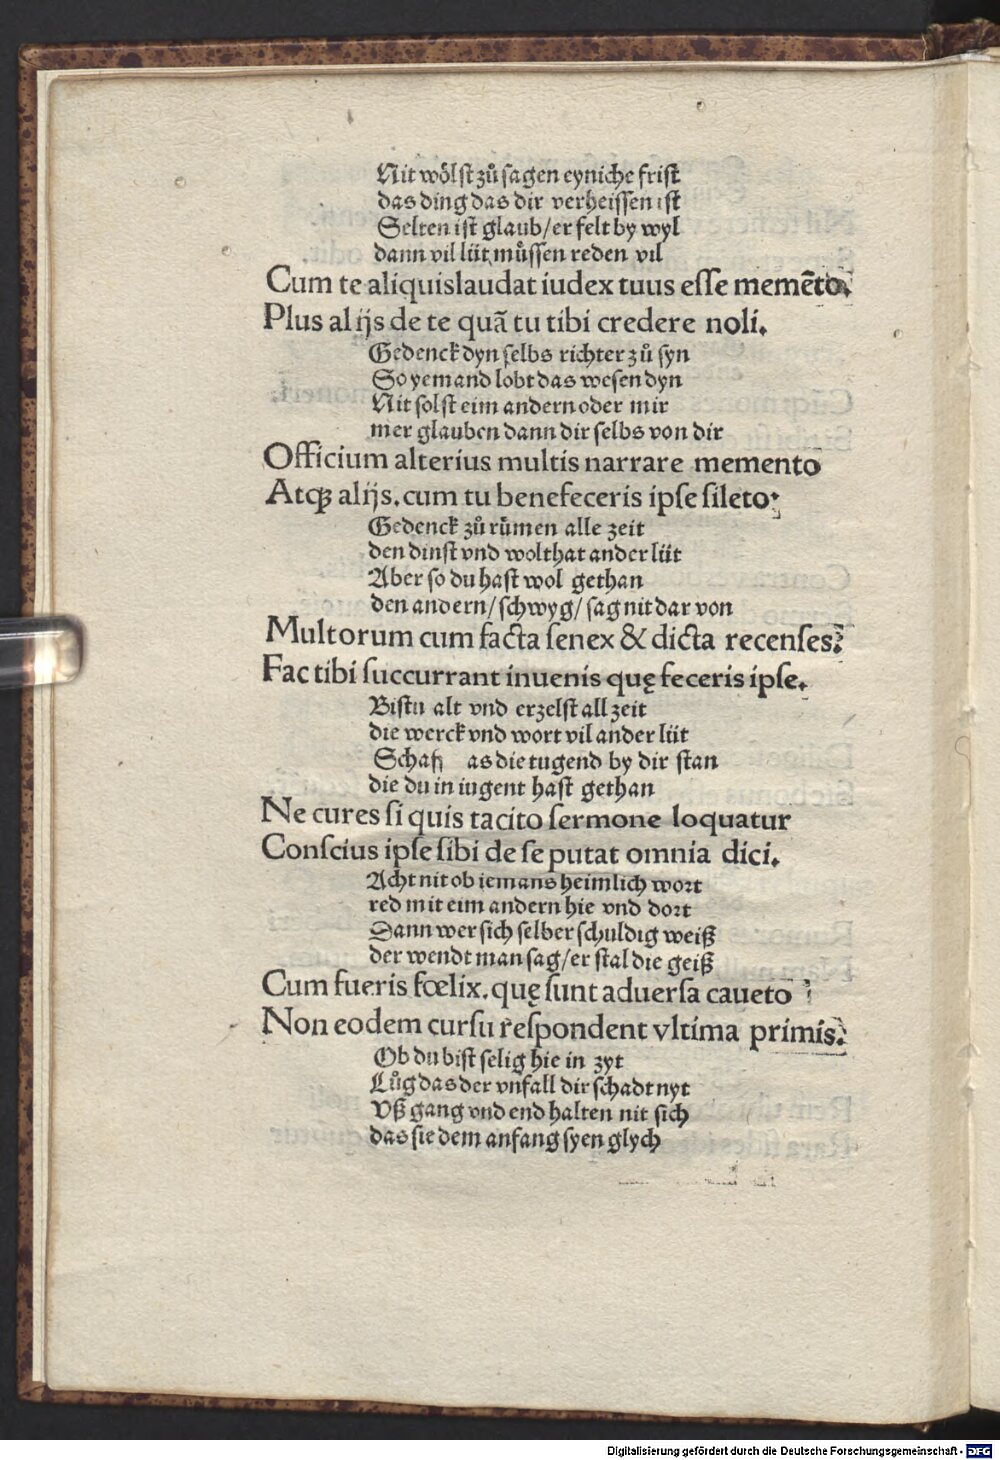 Nit wölst zů sagen eyniche frist
das ding das dir verheissen ist
Selten ist glaub/ er felt by wyl
dann vil lüt müssen reden vil
Cum te aliquis laudat iudex tuus esse memēto.
Plus alijs de te quā tu tibi credere noli.
Gedenck dyn selbs richter zů syn
So yemand lobt das wesen dyn
Nit solst eim andern oder mir
mer glauben dann dir selbs von dir
Officium alterius multis narrare memento
Atqꝫ alijs. cum tu benefeceris ipse sileto:
Gedenck zů rümen alle zeit
den dinst vnd wolthat ander lüt
Aber so du hast wol gethan
den andern/ schwyg/ sag nit dar von
Multorum cum facta senex & dicta recenses:
Fac tibi succurrant inuenis quę feceris ipse.
Bistu alt vnd erzelst all zeit
die werck vnd wort vil ander lüt
Schaff as die tugend by dir stan
die du in iugent hast gethan
Ne cures si quis tacito sermone loquatur
Conscius ipse sibi de se putat omnia dici.
Acht nit ob iemans heimlich wort
red mit eim andern hie vnd dort
Dann wer sich selber schuldig weiß
der wendt man sag/ er stal die geiß
Cum fueris fœlix. quę sunt aduersa caueto :
Non eodem cursu respondent vltima primis:
Ob du bist selig hie in zyt
Lůg das der vnfall dir schadt nyt
Vß gang vnd end halten nit sich
das sie dem anfang syen glych
Digitalisierung gefördert durch die Deutsche Forschungsgemeinschaft - DFG